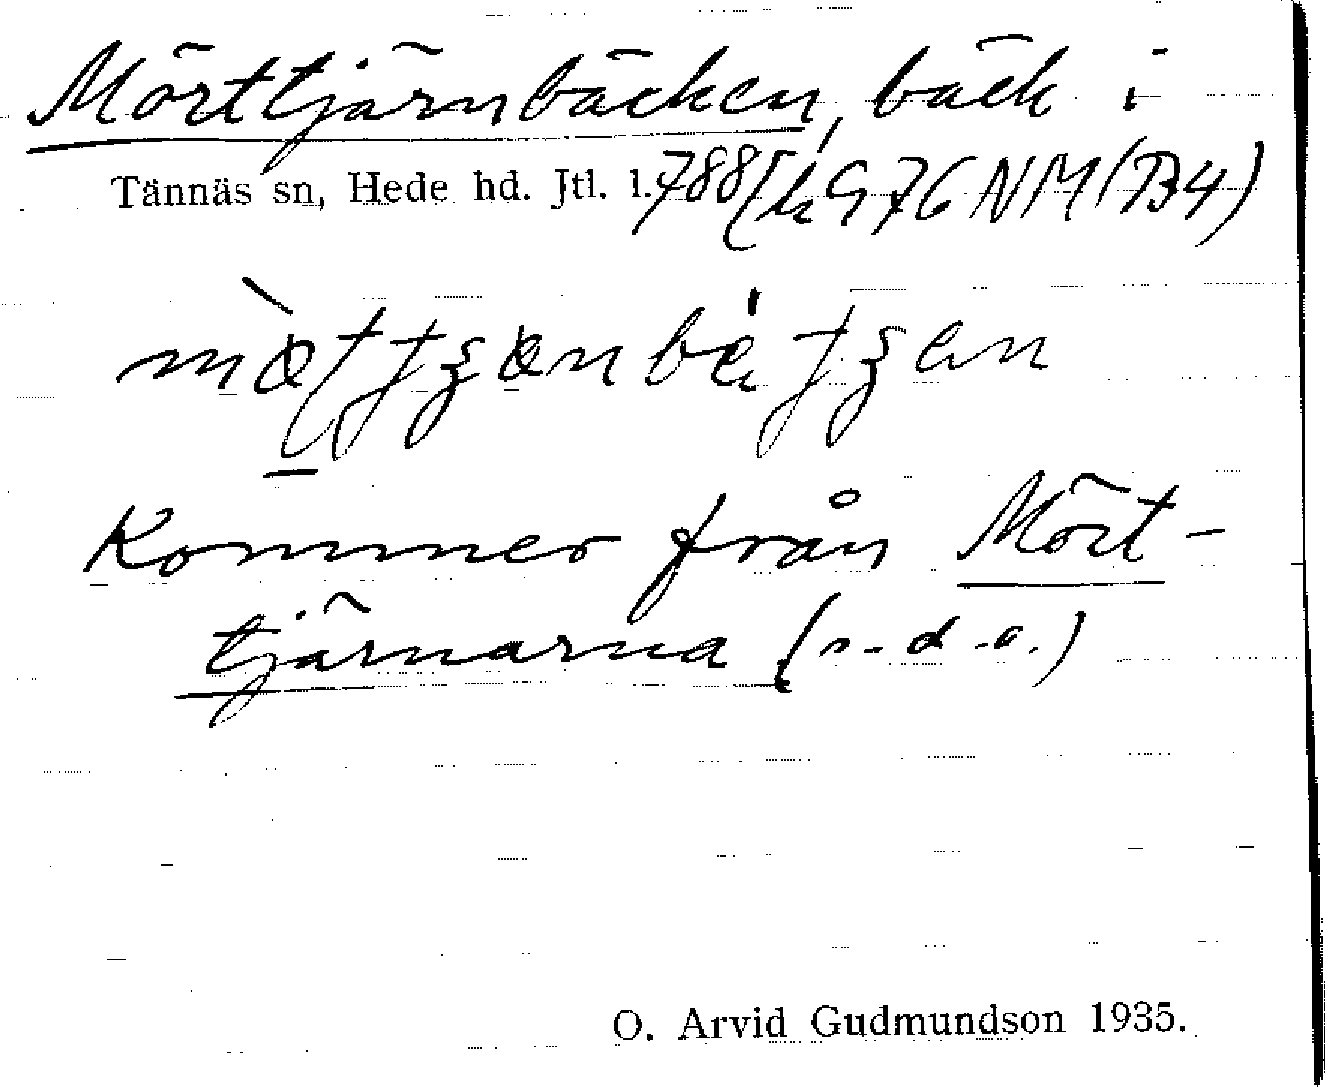 Mörttjärnbäcken, bäck i
Tännäs sn, Hede hd. Jtl. l. 788 976 NM (B4)
Kommer från Mört-
tjärnarna (s.d.o.)
O. Arvid Gudmundson 1935.